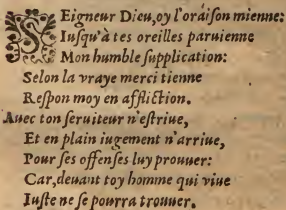 SEigneur Dieu, oy l'oráiſon mienne:
Iuſqu'à tes oreilles paruienne
Mon humble ſupplication:
Selon la vraye merci tienne
Reſpon moy en affliction.
Auec ton ſeruiteur n'eſtriue,
Et en plain iugement n'arriue,
Pour ſes offenſes luy prouuer:
Car, deuant toy homme qui viue
Iuſte ne ſe pourra trouuer.